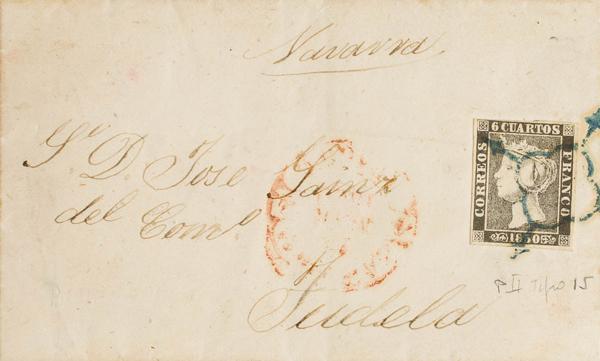 Navarra.
Sr. D. Jose Sainz
del Como
Tudela
6 CUARTOS
CORREOS
FRANCO
1850
P II Tipo 15